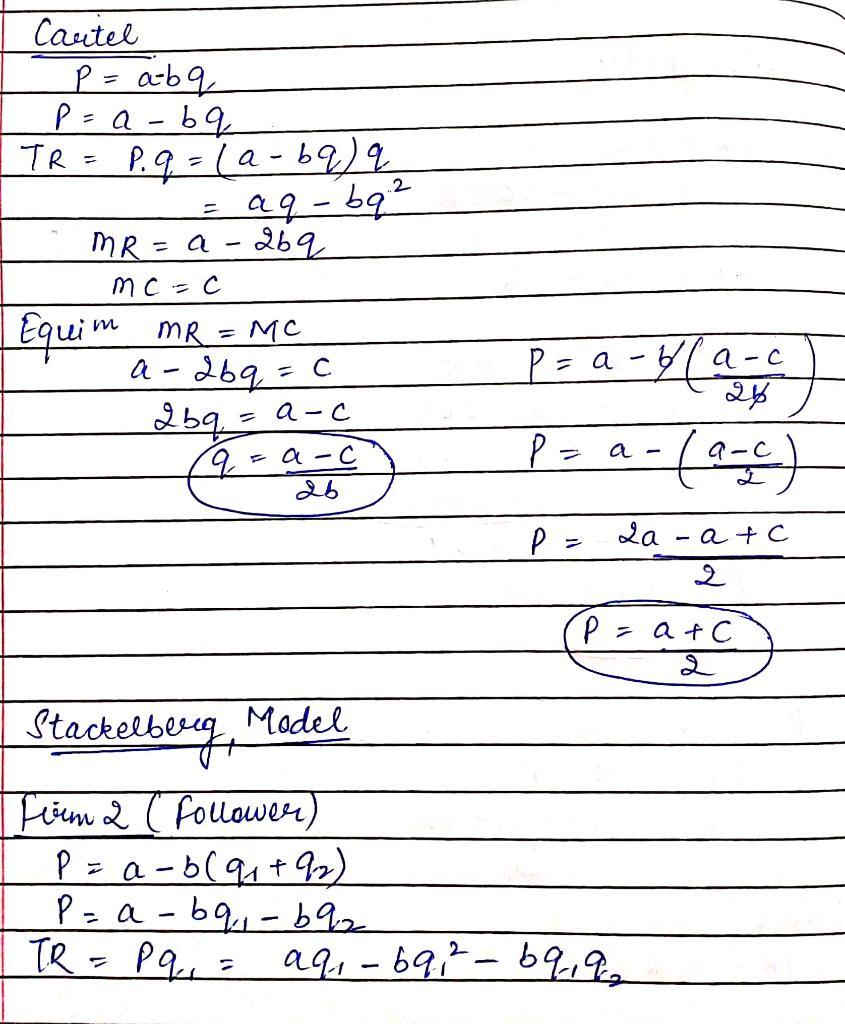 Cartel
P = a-bq
P = a - bq
TR = P.q = (a - bq)q
= aq - bq²
MR = a - 2bq
MC = C
Equim MR = MC
a - 2bq = C
2bq = a - c
q = a - c / 2b
P = a - b(a - c / 2b)
P = a - (a - c / 2)
P = 2a - a + c / 2
P = a + c / 2
Stackelberg Model
Firm 2 (Follower)
P = a - b(q₁ + q₂)
P = a - bq₁ - bq₂
TR = Pq₁ = aq₁ - bq₁² - bq₁q₂